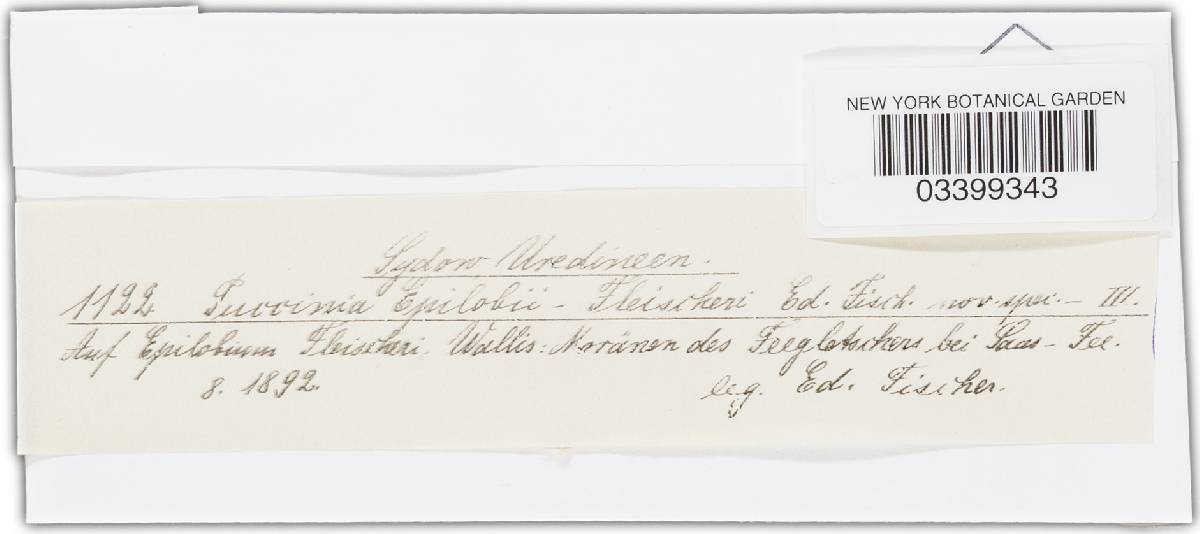 NEW YORK BOTANICAL GARDEN
03399343
Sydow Uredineen.
1122 Puccinia Epilobii - Fleischeri Ed. Fisch. nov. spec. - III.
Auf Epilobium Fleischeri. Wallis: Moränen des Feegletschers bei Saas-Fee.
8. 1892. leg. Ed. Fischer.